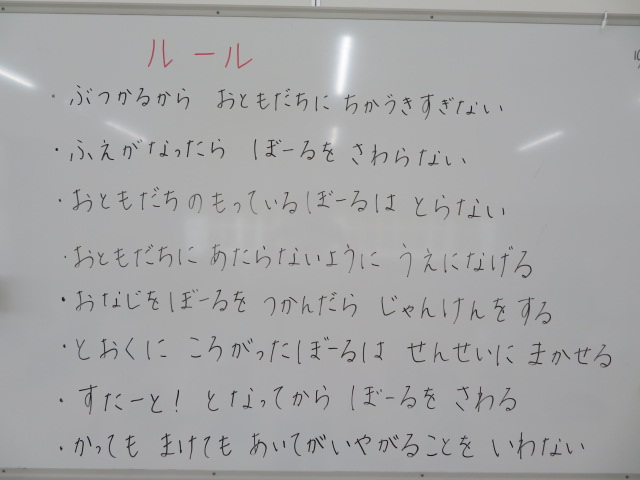 ルール
・ぶつかるから おともだちに ちかづきすぎない
・ふえがなったら ぼーるを さわらない
・おともだちのもっているぼーるは とらない
・おともだちに あたらないように うえになげる
・おなじをぼーるを つかんだら じゃんけんをする
・とおくに ころがったぼーるは せんせいに まかせる
・すたーと! となってから ぼーるを さわる
・かっても まけても あいてがいやがることを いわない